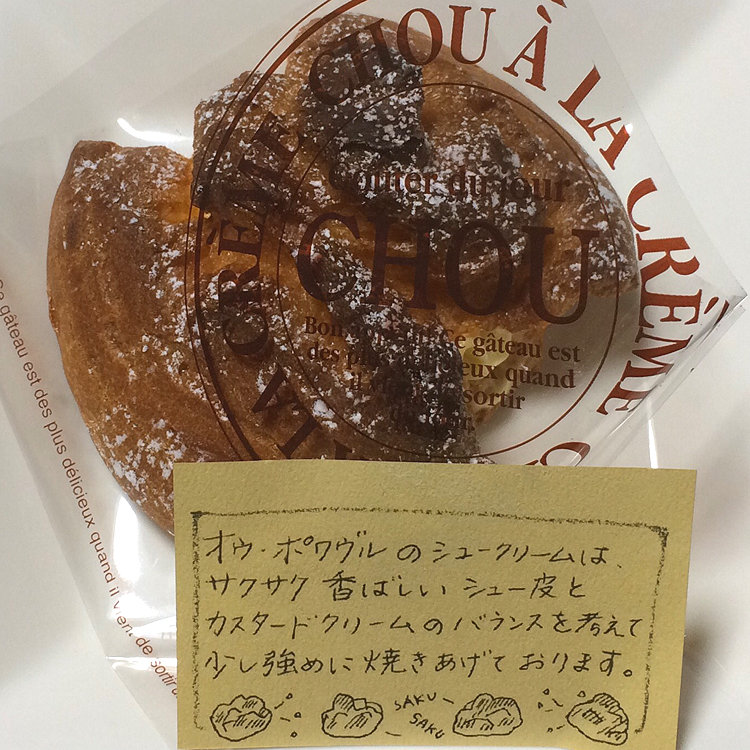 CHOU À LA CRÈME
CRÈME
Goûter du jour
CHOU
Ce gâteau est
des plus délicieux quand
sortir
Ce gâteau est des plus délicieux quand il vient de sortir
オウ・ポワヴルのシュークリームは、
サクサク香ばしいシュー皮と
カスタードクリームのバランスを考えて
少し強めに焼きあげております。
SAKU
SAKU